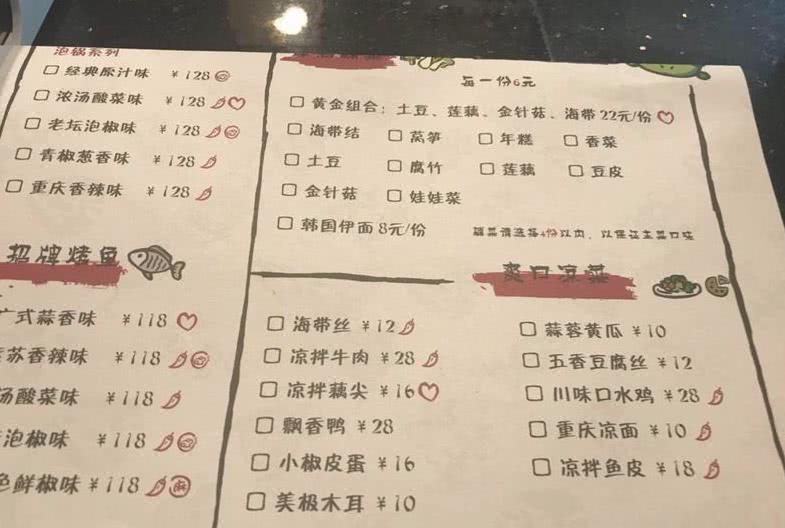 泡锅系列
经典原汁味 ￥128
浓汤酸菜味 ￥128
老坛泡椒味 ￥128
青椒葱香味 ￥128
重庆香辣味 ￥128
招牌烤鱼
广式蒜香味 ￥118
苏香辣味 ￥118
汤酸菜味 ￥118
泡椒味 ￥118
色鲜椒味 ￥118 麻
每一份6元
黄金组合：土豆、莲藕、金针菇、海带 22元/份
海带结 莴笋 年糕 香菜
土豆 腐竹 莲藕 豆皮
金针菇 娃娃菜
韩国伊面 8元/份
蔬菜请选择4份以内，以保证主菜口味
爽口凉菜
海带丝 ￥12 蒜蓉黄瓜 ￥10
凉拌牛肉 ￥28 五香豆腐丝 ￥12
凉拌藕尖 ￥16 川味口水鸡 ￥28
飘香鸭 ￥28 重庆凉面 ￥10
小椒皮蛋 ￥16 凉拌鱼皮 ￥18
美极木耳 ￥10